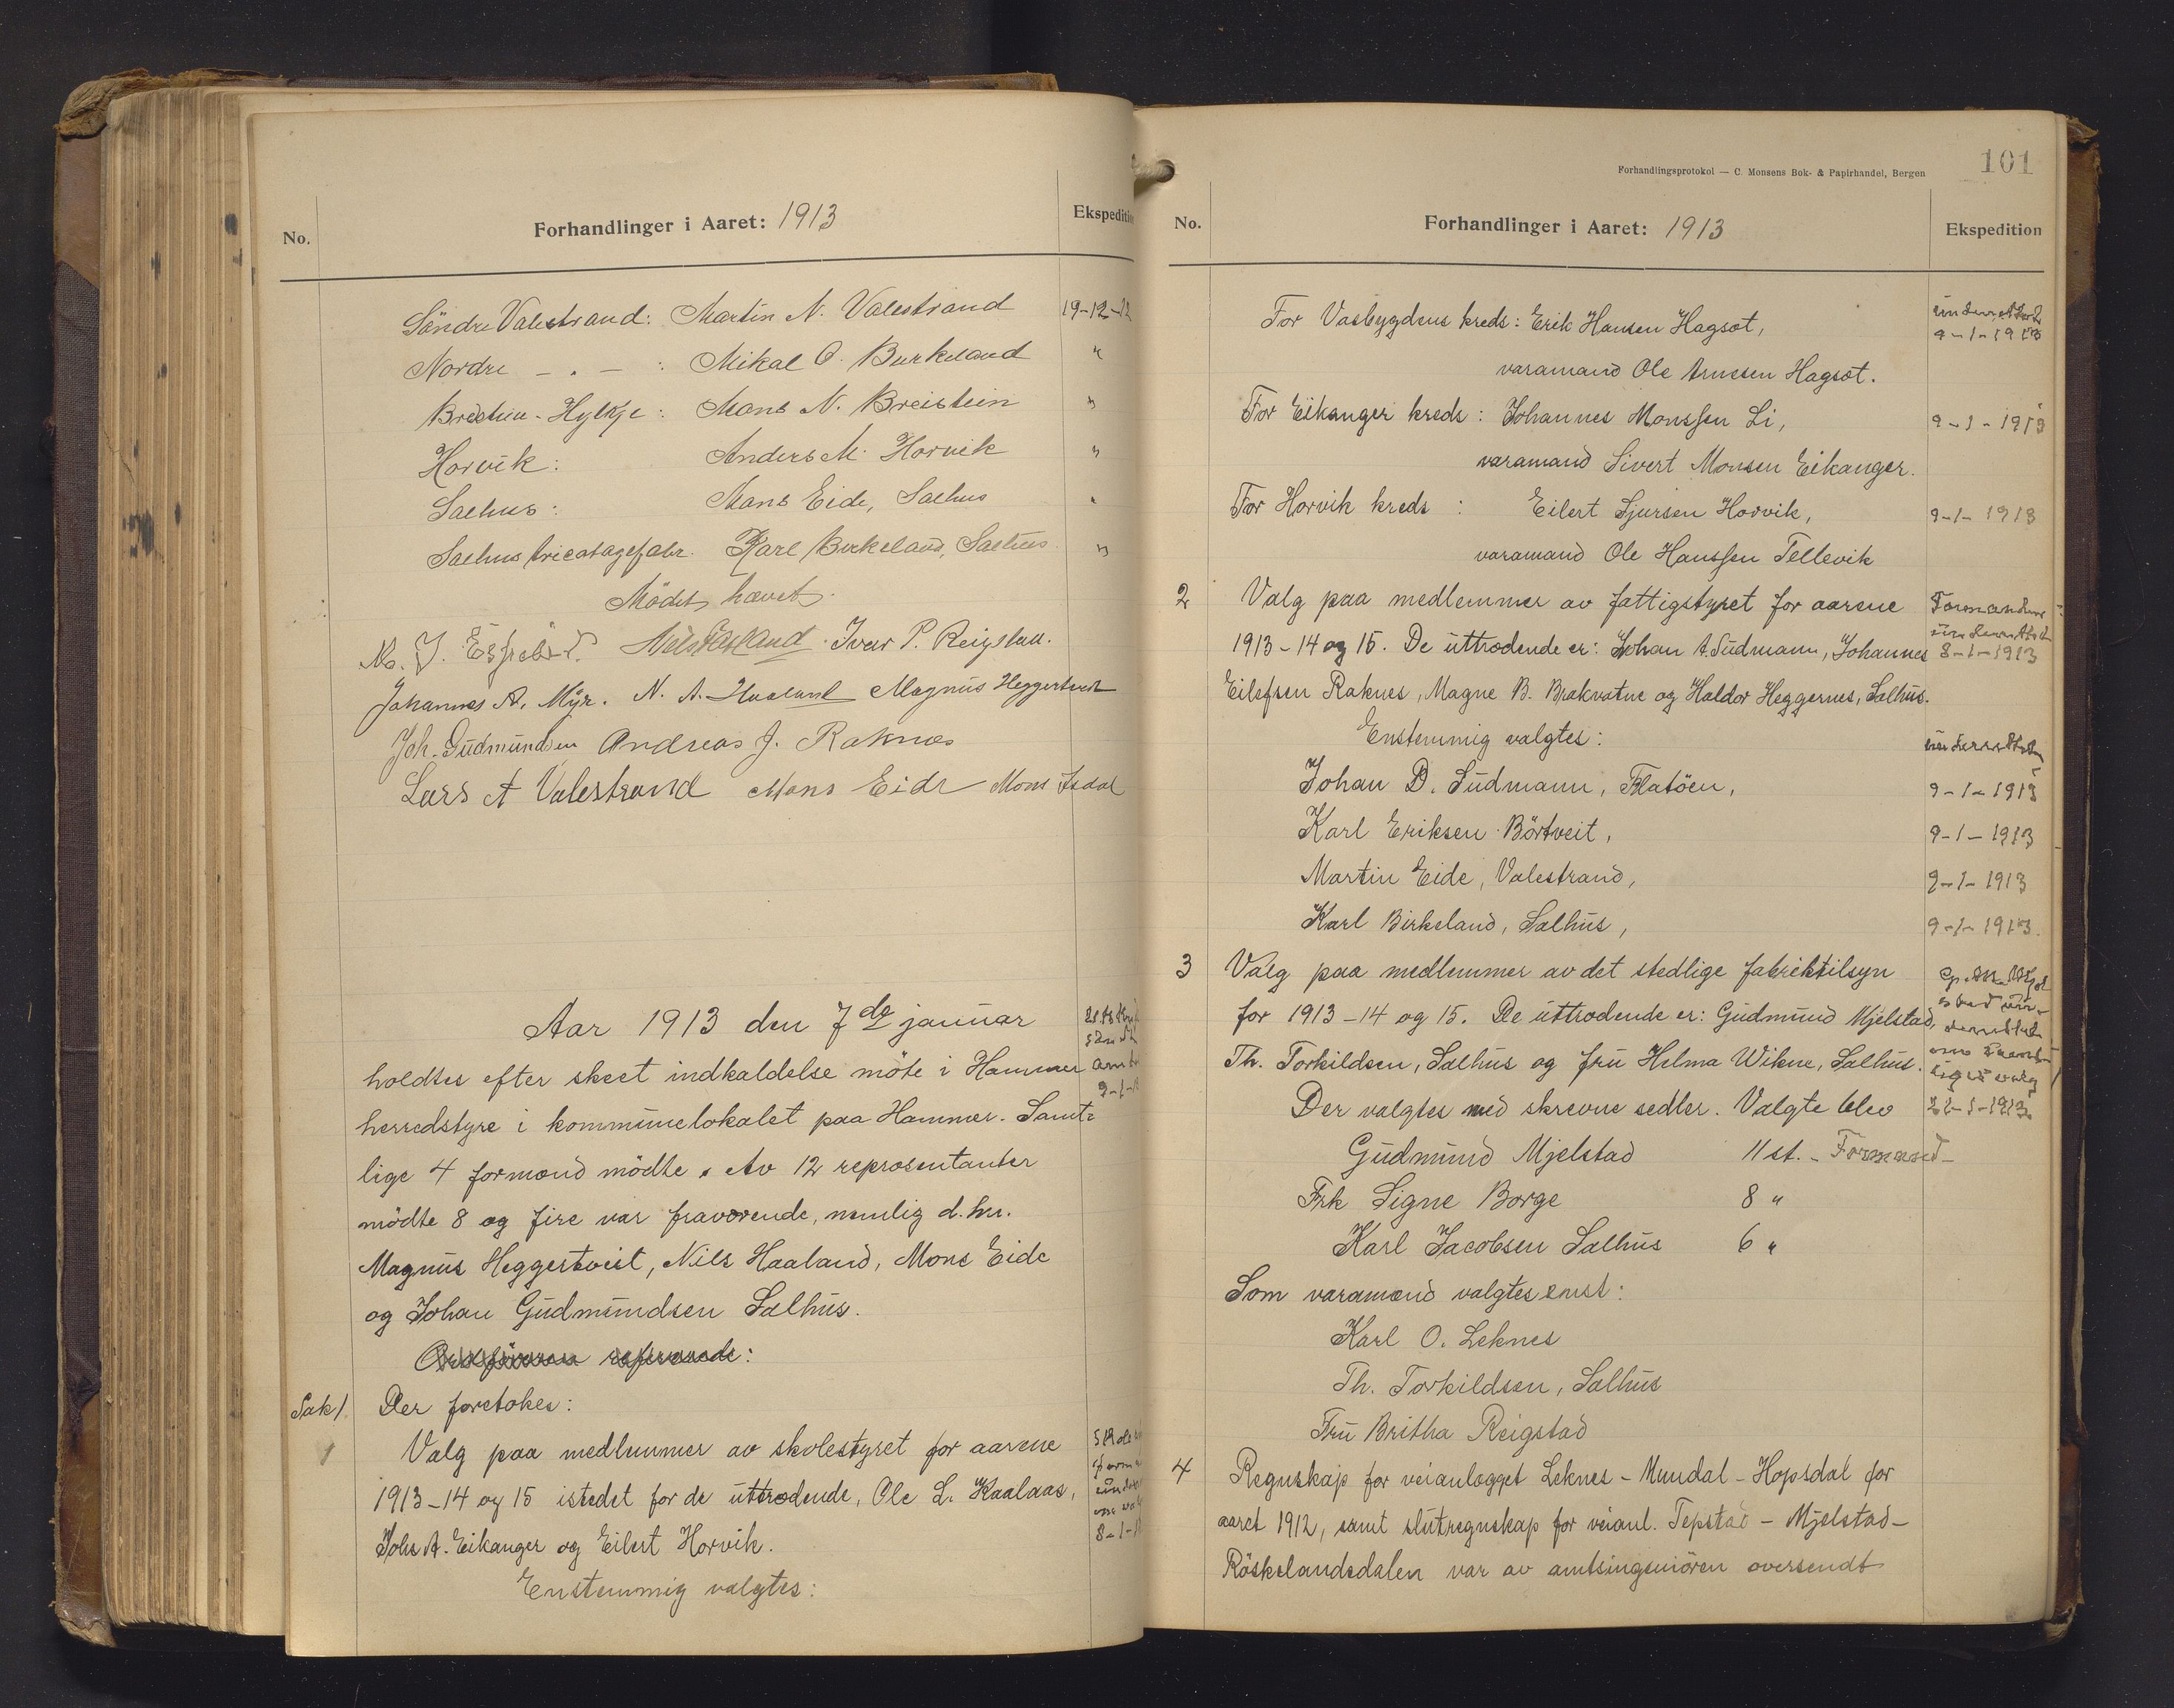 No.
Forhandlinger i Aaret: 1913
Ekspedition
Söndre Valestrand: Martin N. Valestrand 19-12-12
Nordre - „ - : Mikal O. Burkeland "
Breistein-Hylkje: Mons N. Breistein "
Horvik: Anders M. Horvik "
Salhus: Mons Eide, Salhus "
Salhus tricotagefabr. Karl Birkeland, Salhus "
Mödet hævet.
Nils Haaland. Ivar P. Reigstad.
Johannes A. Myr. N. A. Haaland Magnus Heggertveit
Joh. Gudmundsen Andreas J. Raknes
Lars A Valestrand Mons Eide Mons Isdal
Aar 1913 den 7de januar
holdtes efter skeet indkaldelse möte i Hammer
herredstyre i kommunelokalet paa Hammer. Samt-
lige 4 formænd mödte. Av 12 repræsentanter
mödte 8 og fire var fraværende, nemlig d.hrr.
Magnus Heggertveit, Nils Haaland, Mons Eide
og Johan Gudmundsen Salhus.
Ordföreren refererede:
Sak 1. Der foretokes:
1 Valg paa medlemmer av skolestyret for aarene
1913-14 og 15 istedet for de uttrædende, Ole L. Kaalaas,
Johs A. Eikanger og Eilert Horvik.
8-1-13
Enstemmig valgtes:
Forhandlingsprotokol — C. Monsens Bok- & Papirhandel, Bergen
101
No.
Forhandlinger i Aaret: 1913
Ekspedition
For Vasbygdens kreds: Erik Hansen Hagsæt, underrettet
9-1-1913
varamand Ole Arnesen Hagsæt.
For Eikanger kreds: Johannes Monssen Li, 9-1-1913
varamand Sivert Monsen Eikanger.
For Horvik kreds: Eilert Sjursen Horvik, 9-1-1913
varamand Ole Hanssen Tellevik
2 Valg paa medlemmer av fattigstyret for aarene Formanden
underrettet
1913-14 og 15. De uttrædende er: Johan A. Sudmann, Johannes 8-1-1913
Eilefsen Raknes, Magne B. Brakvatne og Haldor Heggernes, Salhus.
Enstemmig valgtes: underrettet
Johan D. Sudmann, Flatöen, 9-1-1913
Karl Eriksen Börtveit, 9-1-1913
Martin Eide, Valestrand, 9-1-1913
Karl Birkeland, Salhus, 9-1-1913.
3 Valg paa medlemmer av det stedlige fabriktilsyn
for 1913-14 og 15. De uttrædende er: Gudmund Mjelstad,
Th. Torkildsen, Salhus og fru Helma Wikne, Salhus.
Der valgtes med skrevne sedler. Valgte blev 21-1-1913
Gudmund Mjelstad 11 st. - Formand -
Frk Signe Borge 8 "
Karl Jacobsen Salhus 6 "
Som varamænd valgtes enst:
Karl O. Leknes
Th. Torkildsen, Salhus
Fru Britha Reigstad
4 Regnskap for veianlægget Leknes - Mundal - Hopsdal for
aaret 1912, samt slutregnskap for veianl. Tepstad - Mjelstad -
Röskelandsdalen var av amtsingeniören oversendt